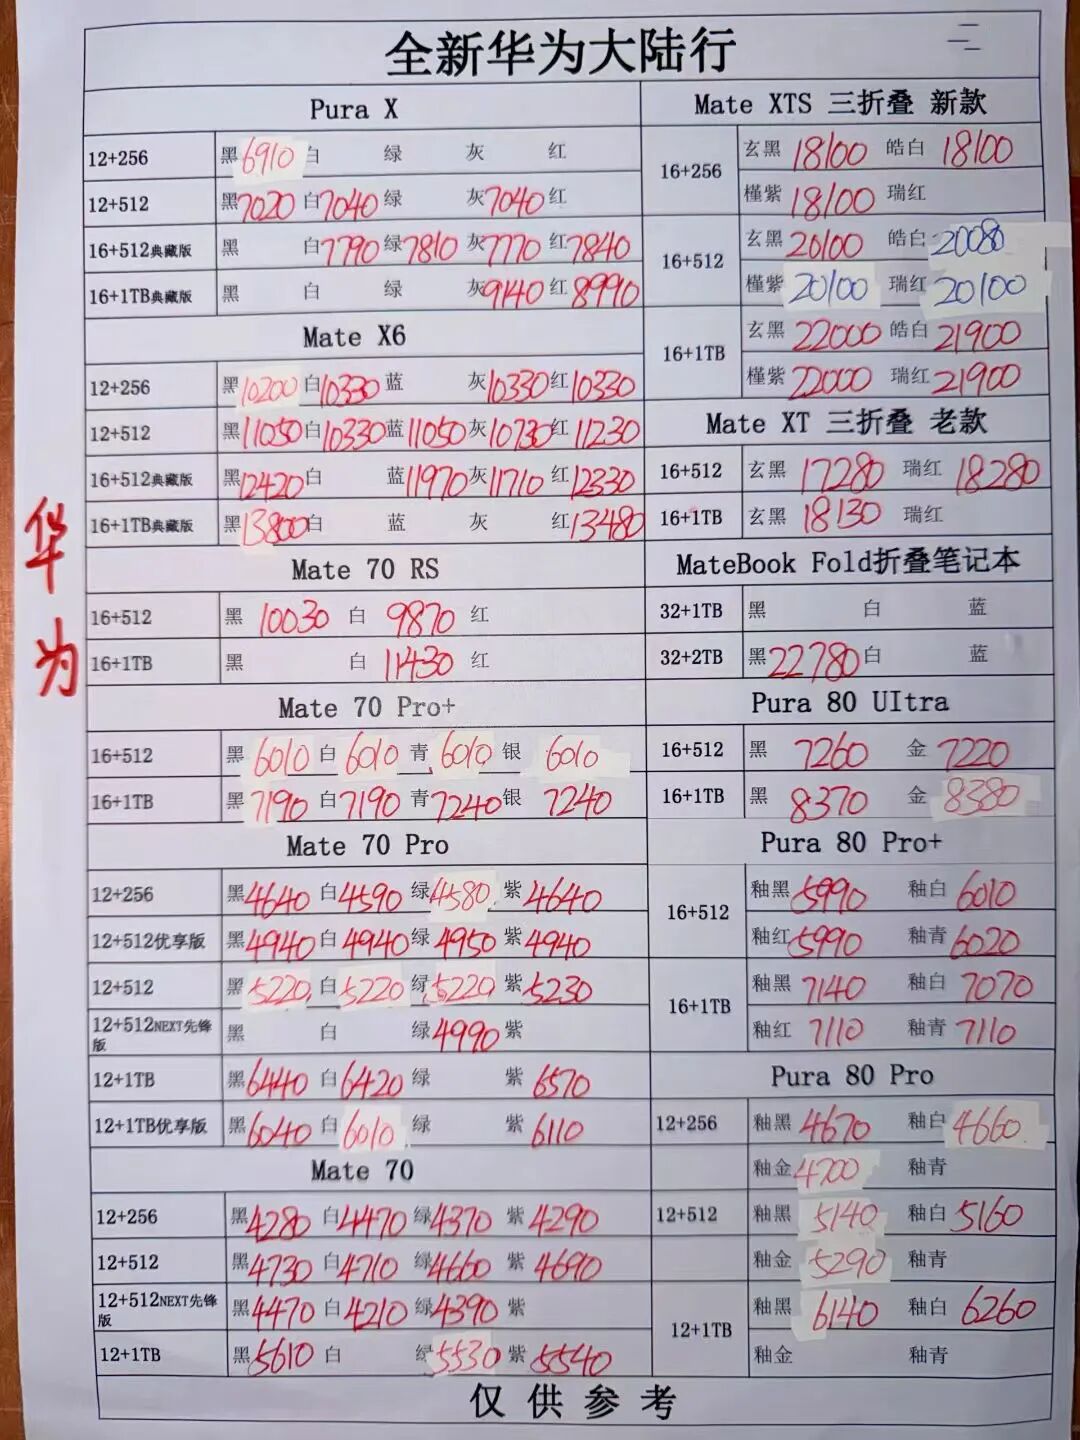 全新华为大陆行
华为
Pura X
12+256 黑6910 白 绿 灰 红
12+512 黑7020 白7040 绿 灰7040 红
16+512典藏版 黑 白7790 绿7810 灰7770 红7840
16+1TB典藏版 黑 白 绿 灰9140 红8990
Mate X6
12+256 黑10200 白10330 蓝 灰10330 红10330
12+512 黑11050 白10330 蓝11050 灰10730 红11230
16+512典藏版 黑12420 白 蓝11970 灰11710 红12330
16+1TB典藏版 黑13800 白 蓝 灰 红13480
Mate 70 RS
16+512 黑 10030 白 9870 红
16+1TB 黑 白 11430 红
Mate 70 Pro+
16+512 黑 6010 白 6010 青 6010 银 6010
16+1TB 黑7190 白7190 青7240 银 7240
Mate 70 Pro
12+256 黑4640 白4590 绿4580 紫4640
12+512优享版 黑4940 白4940 绿4950 紫4940
12+512 黑5220 白5220 绿5220 紫5230
12+512NEXT先锋版 黑 白 绿4990 紫
12+1TB 黑6440 白6420 绿 紫 6570
12+1TB优享版 黑6040 白6010 绿 紫 6110
Mate 70
12+256 黑4280 白4470 绿4370 紫4290
12+512 黑4730 白4710 绿4660 紫4690
12+512NEXT先锋版 黑4470 白4210 绿4390 紫
12+1TB 黑5610 白 绿5530 紫5540
Mate XTS 三折叠 新款
16+256 玄黑 18100 皓白 18100
槿紫 18100 瑞红
16+512 玄黑 20100 皓白 20080
槿紫 20100 瑞红 20100
16+1TB 玄黑 22000 皓白 21900
槿紫 22000 瑞红 21900
Mate XT 三折叠 老款
16+512 玄黑 17280 瑞红 18280
16+1TB 玄黑 18130 瑞红
MateBook Fold折叠笔记本
32+1TB 黑 白 蓝
32+2TB 黑22780 白 蓝
Pura 80 UItra
16+512 黑 7260 金 7220
16+1TB 黑 8370 金 8380
Pura 80 Pro+
16+512 釉黑 5990 釉白 6010
釉红5990 釉青 6020
16+1TB 釉黑 7140 釉白 7070
釉红 7110 釉青 7110
Pura 80 Pro
12+256 釉黑 4670 釉白 4660
釉金 4700 釉青
12+512 釉黑 5140 釉白 5160
釉金 5290 釉青
12+1TB 釉黑 6140 釉白 6260
釉金 釉青
仅供参考